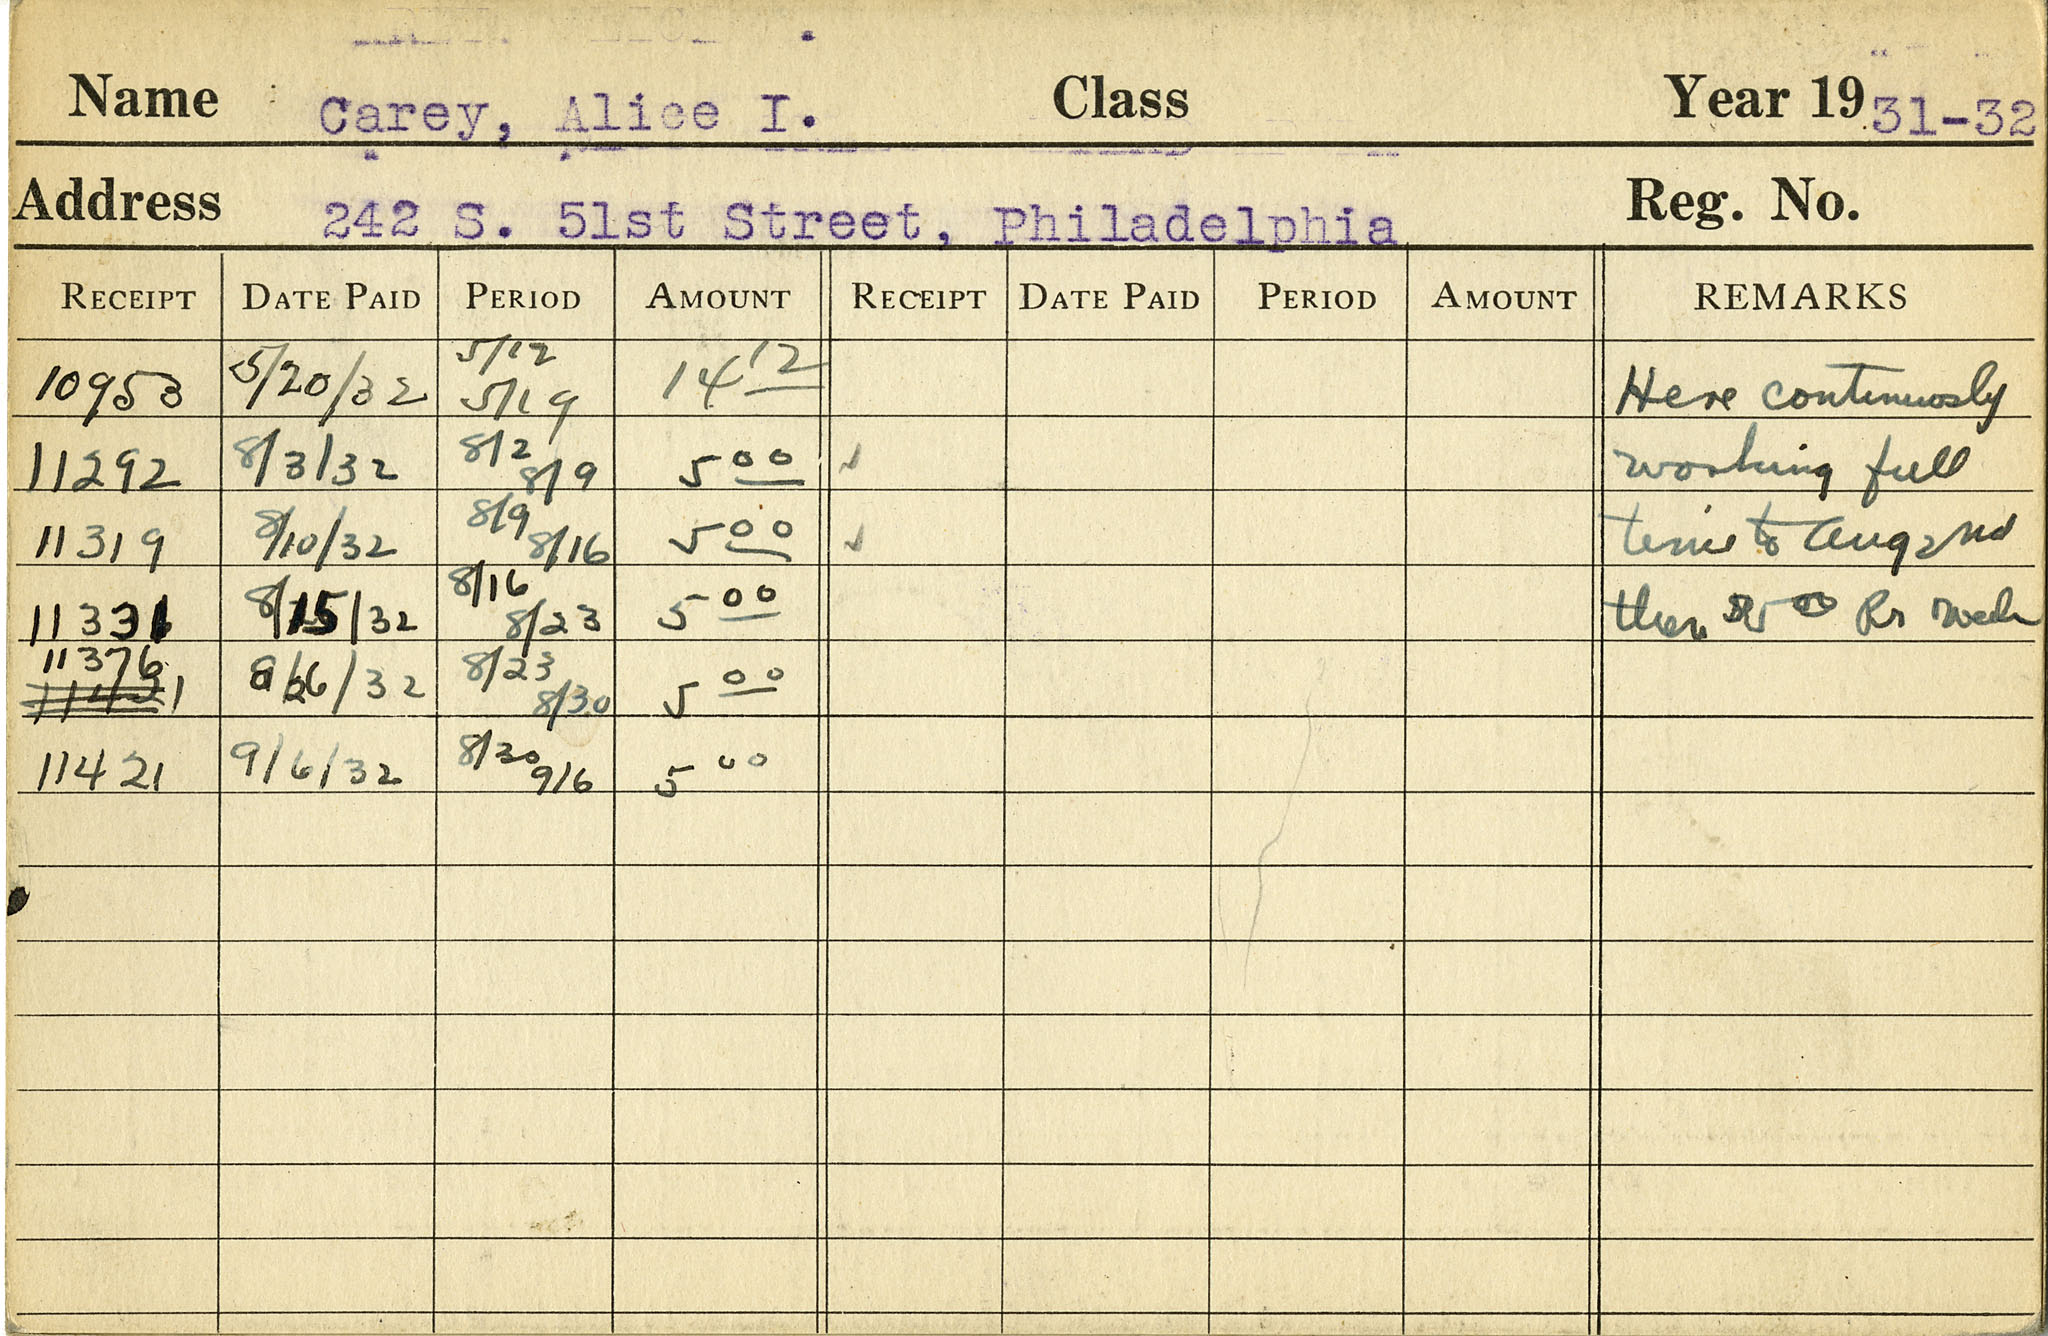 Name Carey, Alice I. Class Year 19 31-32
Address 242 S. 51st Street, Philadelphia Reg. No.
RECEIPT DATE PAID PERIOD AMOUNT RECEIPT DATE PAID PERIOD AMOUNT REMARKS
10953 5/20/32 5/12 5/19 14 12 Here continuosly
11292 8/3/32 8/2 8/9 5 00 working full
11319 8/10/32 8/9 8/16 5 00 time to Aug 2nd
11331 8/15/32 8/16 8/23 5 00 then 5 00 Pr week
11376
11421 8/26/32 8/23 8/30 5 00
11421 9/6/32 8/30 9/6 5 00